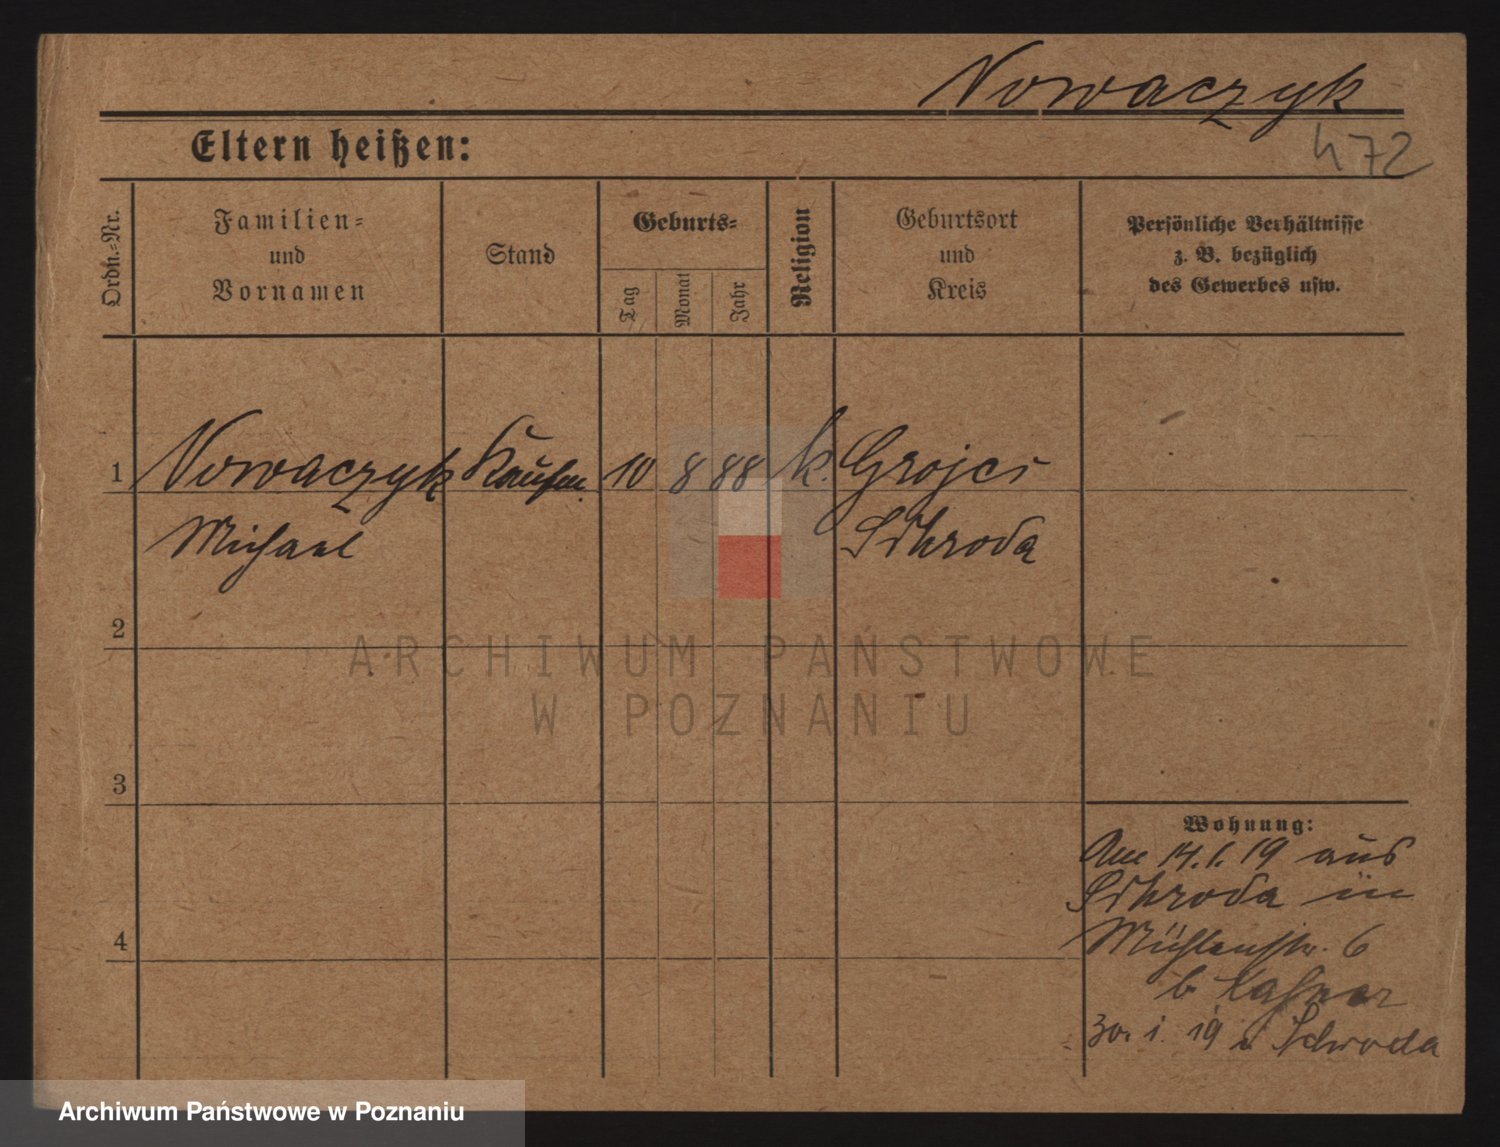 Nowaczyk
472
Eltern heißen:
Ordn.-Nr.
Familien-
und
Vornamen
Stand
Geburts-
Tag
Monat
Jahr
Religion
Geburtsort
und
Kreis
Persönliche Verhältnisse
z. B. bezüglich
des Gewerbes usw.
1 Nowaczyk Kaufm. 10 8 88 k.
Michael Schroda
2
ARCHIWUM PAŃSTWOWE
W POZNANIU
3
Wohnung:
Am 14.1.19 aus
Schroda in
4
Mühlenstr. 6
b.
30. 1. 19 Schroda
Archiwum Państwowe w Poznaniu